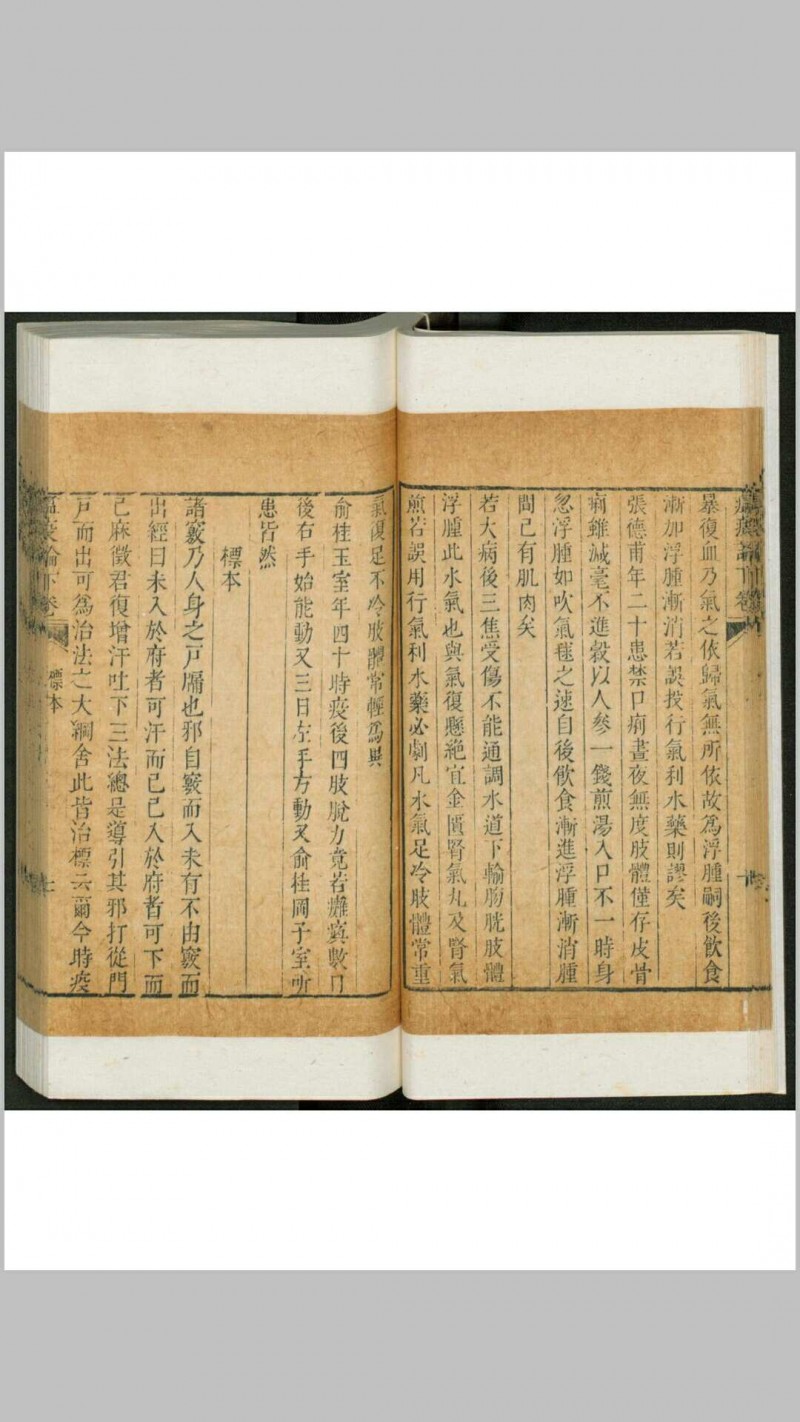 瘟疫論下卷
暴復血乃氣之依歸氣無所依故爲浮腫嗣後飲食
漸加浮腫漸消若誤投行氣利水藥則謬矣
張德甫年二十患禁口痢晝夜無度肢體僅存皮骨
痢雖減毫不進穀以人參一錢煎湯入口不一時身
忽浮腫如吹氣毬之速自後飲食漸進浮腫漸消腫
間已有肌肉矣
若大病後三焦受傷不能通調水道下輸膀胱肢體
浮腫此水氣也與氣復懸絕宜金匱腎氣丸及腎氣
煎若誤用行氣利水藥必劇凡水氣足冷肢體常重
氣復足不冷肢體常輕爲異
俞桂玉室年四十時疫後四肢脫力竟若癱瘓數日
後右手始能動又三日左手方動又俞桂岡子室所
患皆然
標本
諸竅乃人身之戸牖也邪自竅而入未有不由竅而
出經曰未入於府者可汗而已已入於府者可下而
已麻徵君復增汗吐下三法總是導引其邪打從門
戸而出可爲治法之大綱舍此皆治標云爾今時疫
溫疫論下卷
標本